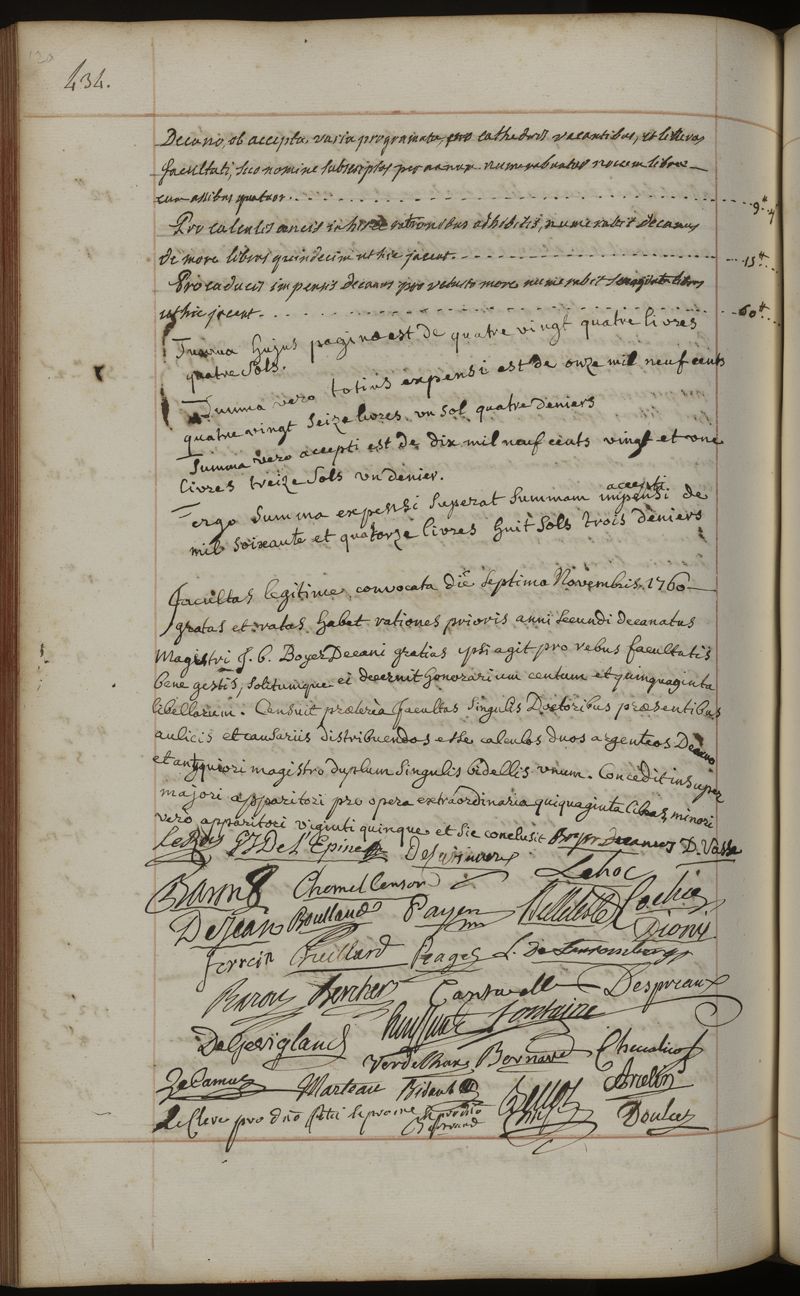 434.
Decano, ob accepta varia programata, pro cathedris vacantibus, et litteras
facultati, seu nomine subscriptas per annum numerabuntur novem librae
cum assibus quatuor. 9# 4
Pro calculis aeneis in hisce rationibus adhibitis, numerabit decanus
de more libras quindecim ut hic jacent. 15#
Pro caducis impensis decanus pro vetusto more numerabit sexaginta libras
ut hic jacent. 60#
Summa hujus paginae est de quatre vingt quatre livres
quatre sols.
Summa vero totius expensi est de onze mil neuf cents
quatre vingt seize livres un sol quatre deniers
Summa vero accepti est de dix mil neuf cents vingt et une
livres treize sols un denier.
ergo summa expensi superat summam impensi accepti de
mil soixante et quatorze livres huit sols trois deniers
Facultas legitime convocata die septima Novembris 1760
gratas et ratas habet rationes prioris anni secundi decanatus
Magistri J. B. Boyer Decani gratias ipsi agit pro rebus facultatis
bene gestis, solitumque ei decernit honorarium centum et quinquaginta
libellarum. Censuit praeterea facultas singulis Doctoribus praesentibus
aulicis et causariis distribuendos esse calculos duos argenteos Decano
et antiquiori magistro duplum singulis bidellis unum. Concedit insuper
majori apparitori pro opera extraordinaria quiquaginta libras minori
vero apparitori viginti quinque et sic conclusit Boyer decanus D. Vasse
Le Roy De L'Epine
Baron Chomel Censor Lehoc
DeJean Boullaud Payen Belleteste Cochu
Ferrein Dionis
Baron Bercher Cantwell Despreaux
De Gevigland Fontaine
Verdelhan Bernard Chevalier
Le Camus Marteau Bidault
Le Clerc pro Doulcet